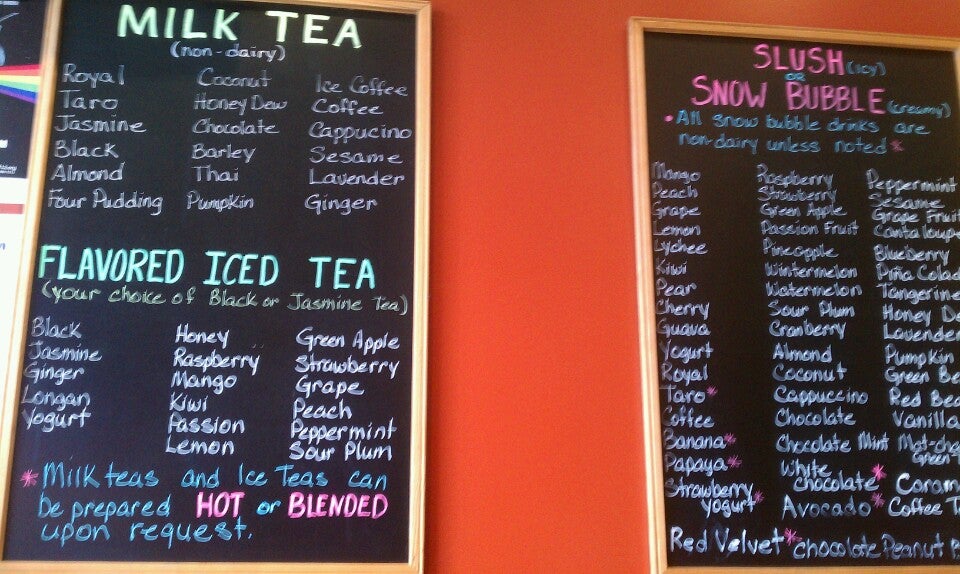 MILK TEA
(non-dairy)
Royal Coconut Ice Coffee
Taro Honey Dew Coffee
Jasmine Chocolate Cappucino
Black Barley Sesame
Almond Thai Lavender
Four Pudding Pumpkin Ginger
FLAVORED ICED TEA
(your choice of Black or Jasmine Tea)
Black Honey Green Apple
Jasmine Raspberry Strawberry
Ginger Mango Grape
Longan Kiwi Peach
Yogurt Passion Peppermint
Lemon Sour Plum
*Milk teas and Ice Teas can
be prepared HOT or BLENDED
upon request.
SLUSH (icy)
OR
SNOW BUBBLE (creamy)
• All snow bubble drinks are
non-dairy unless noted *
Mango Raspberry Peppermint
Peach Strawberry Sesame
Grape Green Apple Grape Fruit
Lemon Passion Fruit Cantaloupe
Lychee Pineapple Blueberry
Kiwi Wintermelon Piña Colad
Pear Watermelon Tangerine
Cherry Sour Plum Honey De
Guava Cranberry Lavender
Yogurt Almond Pumpkin
Royal Coconut Green Be
Taro * Cappuccino Red Bea
Coffee Chocolate Vanilla
Banana * Chocolate Mint Mat-cha
Green
Papaya * White
Chocolate * Caram
Strawberry
Yogurt * Avocado * Coffee T
Red Velvet * Chocolate Peanut B